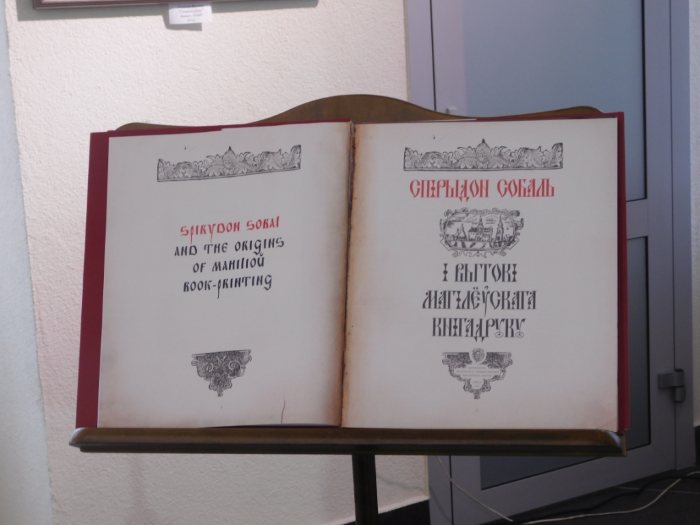 SPIRYDON SOBAL
AND THE ORIGINS
OF MAHILIOŬ
BOOK-PRINTING
СПІРЫДОН СОБАЛЬ
І ВЫТОКІ
МАГІЛЁЎСКАГА
КНІГАДРУКУ